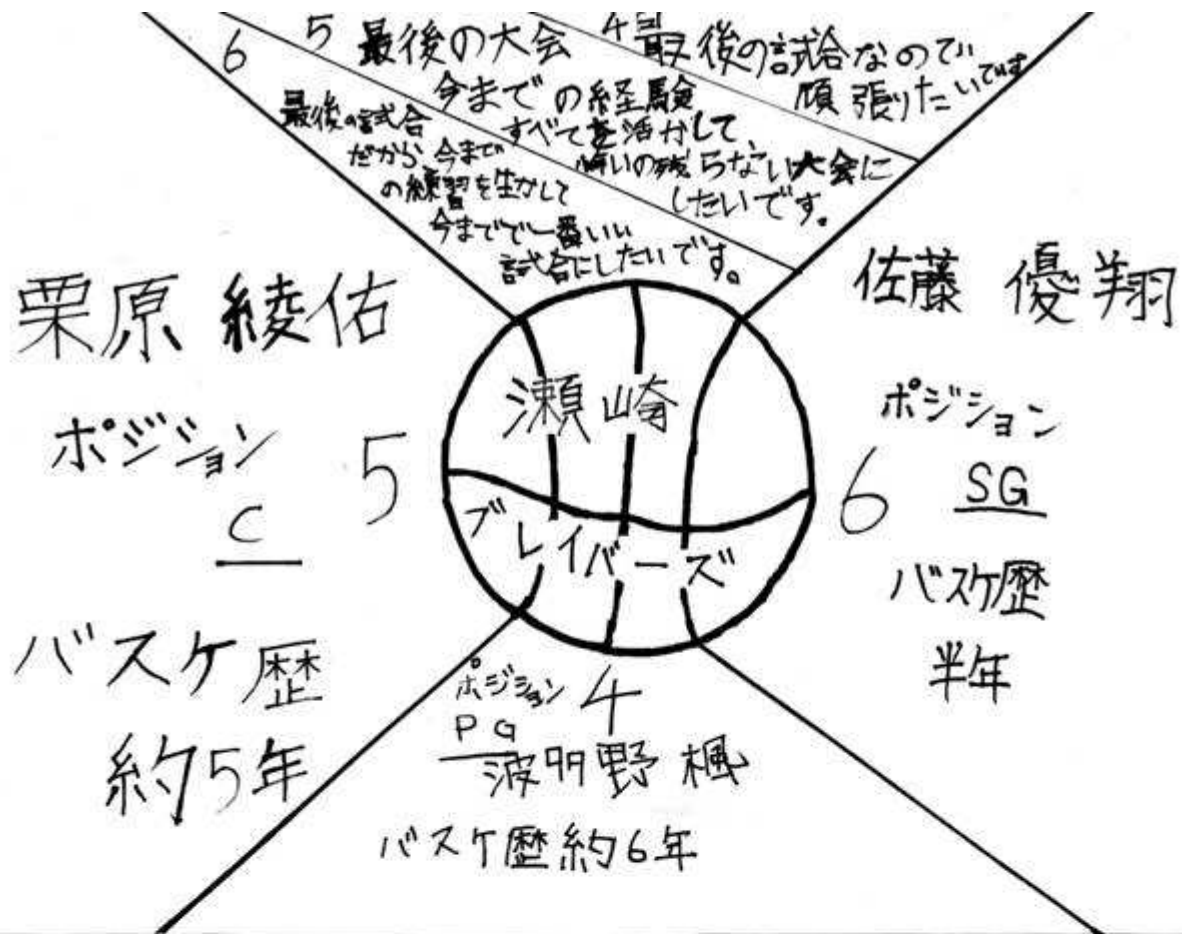 6
最後の試合
だから今まで
の練習を生かして
今までで一番いい
試合にしたいです。
5
最後の大会
今までの経験
すべてを活かして
悔いの残らない大会に
したいです。
4
最後の試合なので
頑張りたいです
栗原 綾佑
ポジション
C
5
バスケ歴
約5年
瀬崎
ブレイバーズ
佐藤 優翔
ポジション
6
SG
バスケ歴
半年
ポジション
4
PG
波多野 楓
バスケ歴約6年